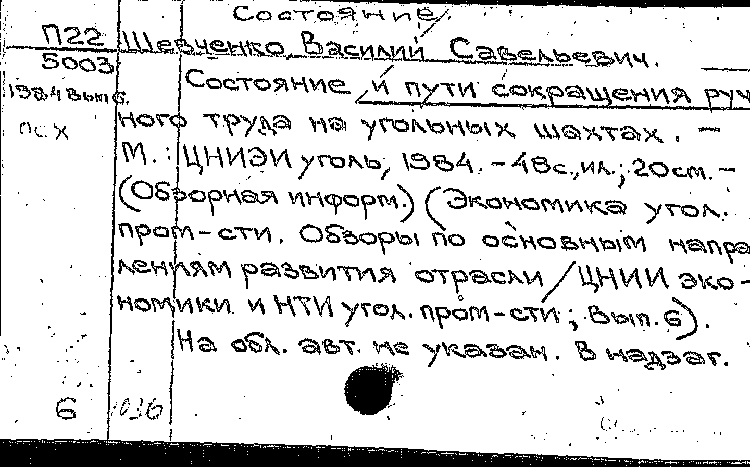 Состояние
П22 Шевченко, Василий Савельевич.
5003 Состояние и пути сокращения руч
1984 вып 6.
ного труда на угольных шахтах. –
М.: ЦНИЭИуголь, 1984. – 48с., ил.; 20см. –
(Обзорная информ.) (Экономика угол.
пром-сти. Обзоры по основным напра
лениям развития отрасли / ЦНИИ эко-
номики и НТИ угол. пром-сти; Вып. 6).
На обл. авт. не указан. В надзаг.
6 036